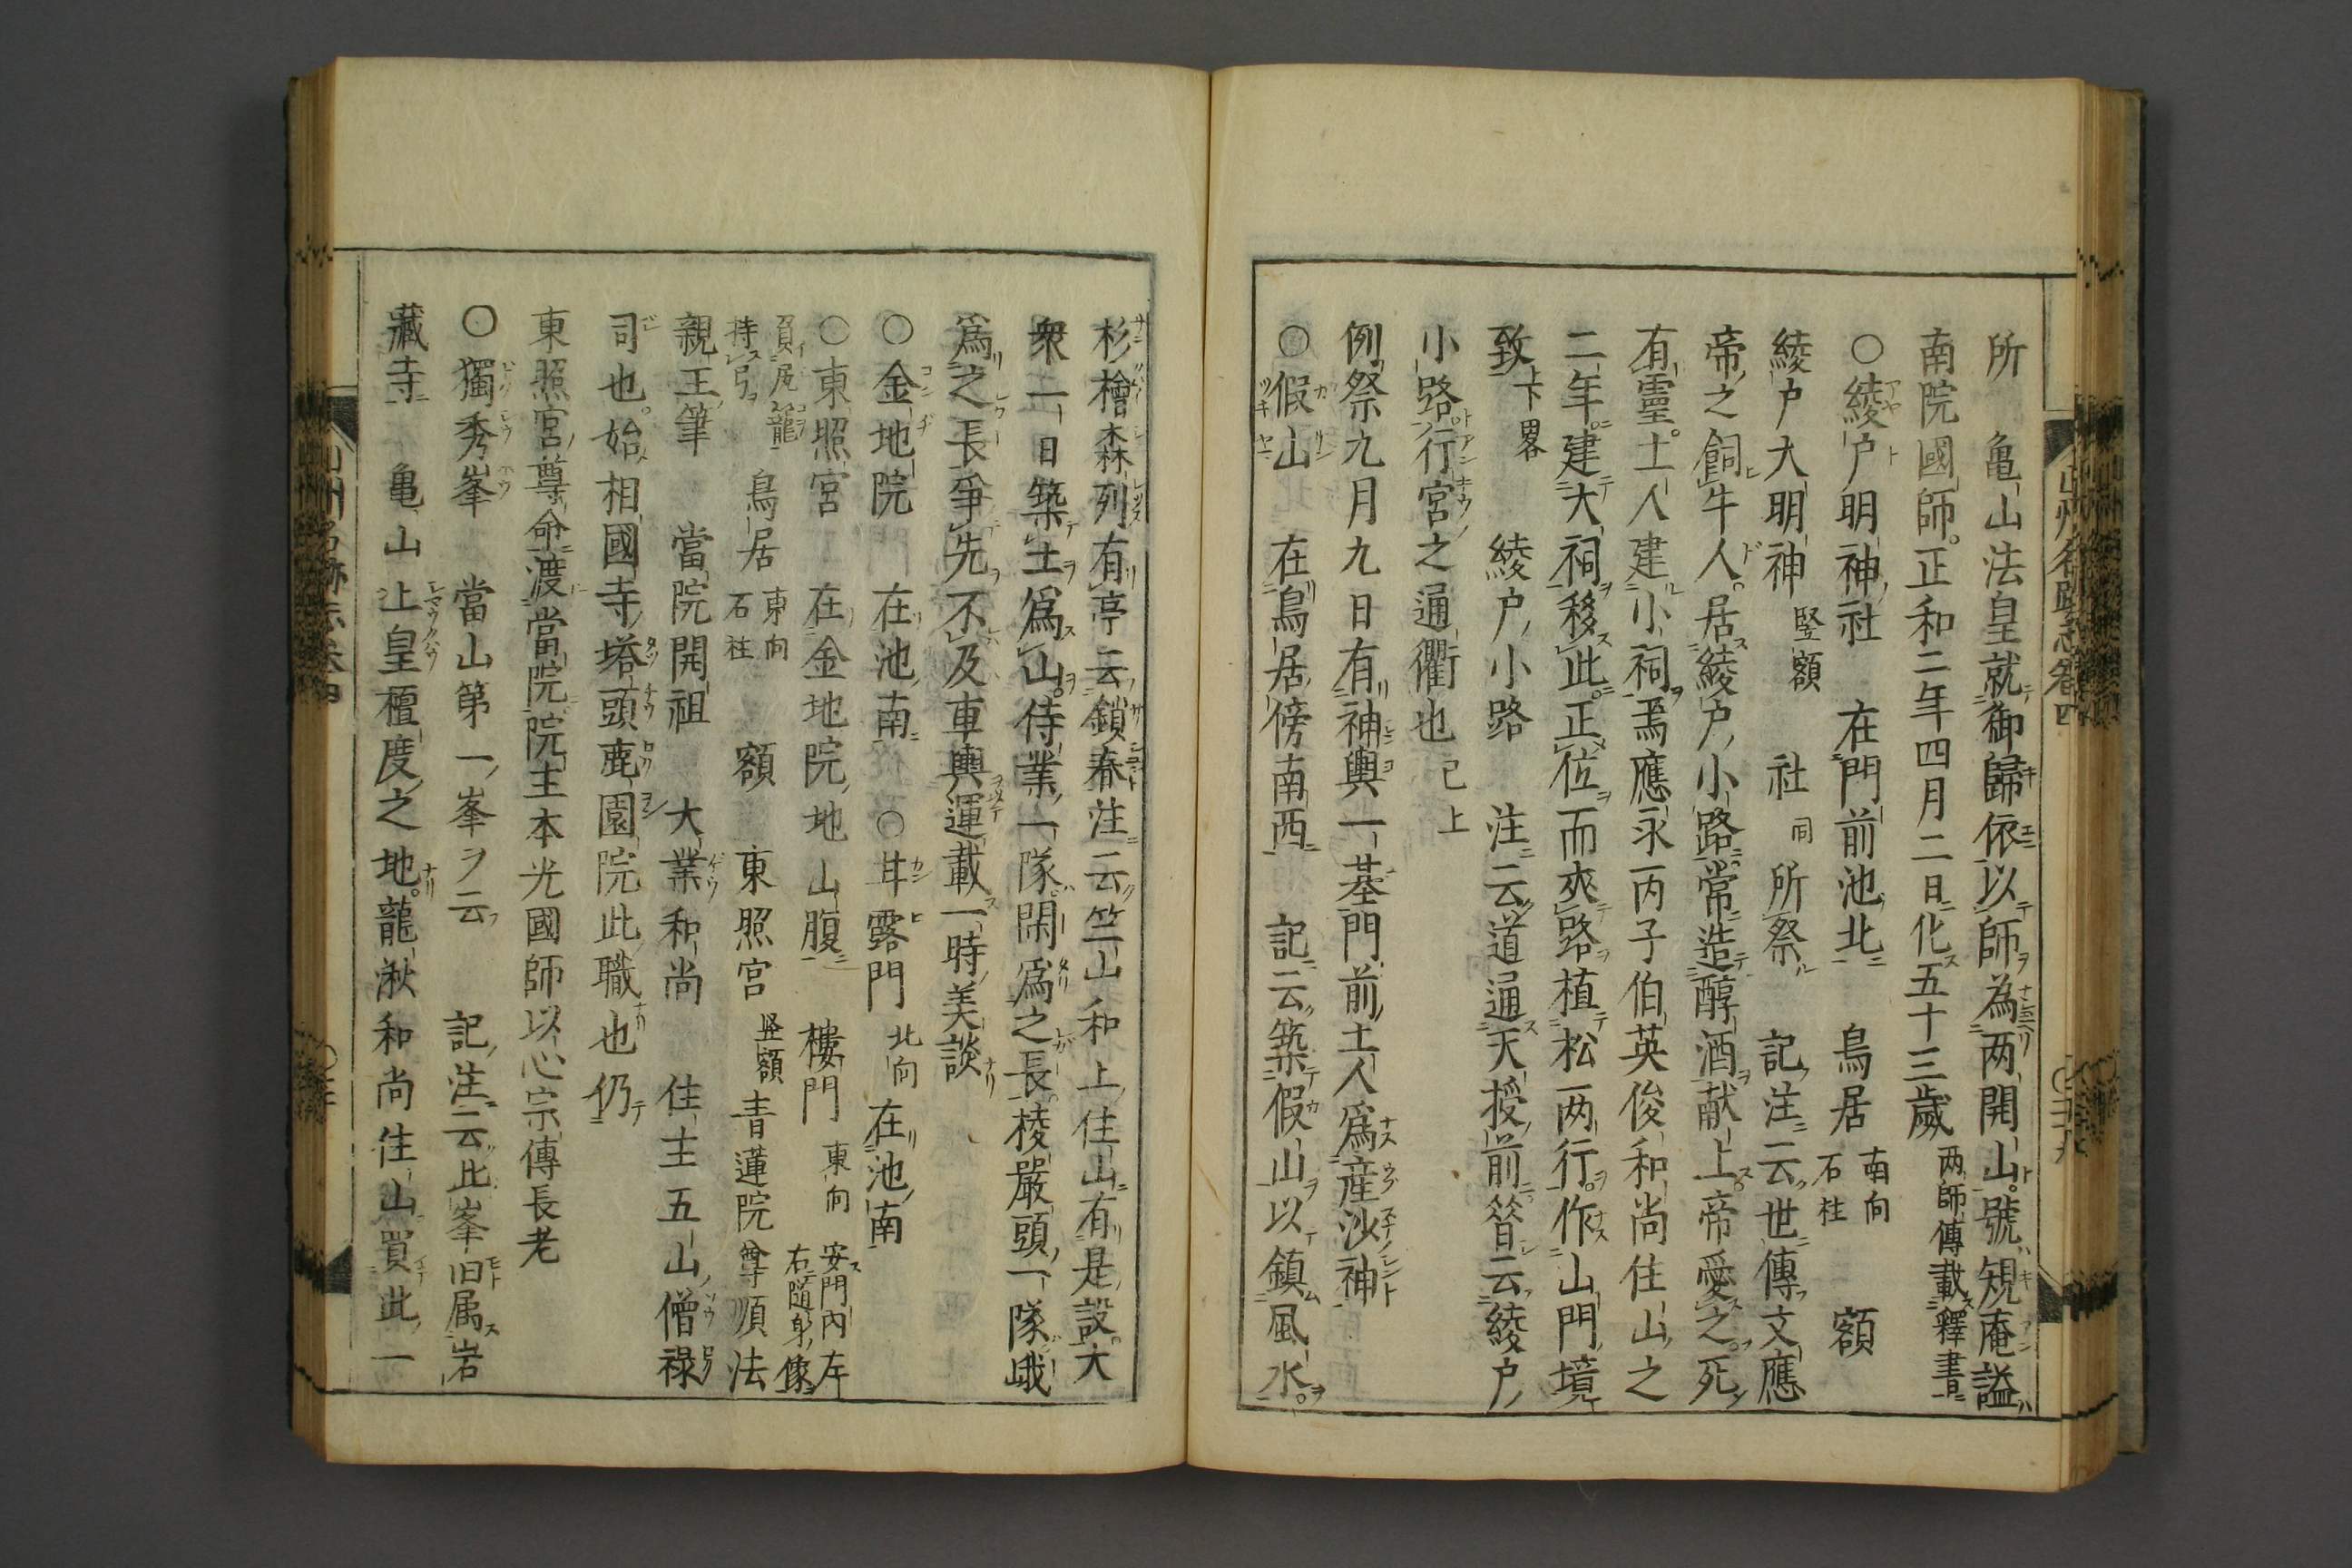 山州名跡志卷四
所　亀山法皇就御歸依以師為两開山號䂓庵謚
南院國師。正和二年四月二日化五十三歳 两師傳載釋書
○綾戸明神社　在門前池北　鳥居 南向 石柱　額
綾戸大明神 竪額　社 同　所祭　記注云世傳文應
帝之飼牛人。居綾戸小路。常造醇酒献上。帝愛之死
有靈。土人建小祠焉應永丙子伯英俊和尚住山之
二年。建大祠移此。正位而夾路植松两行。作山門境
致 上下畧　綾戸小路　注云道通天授前簮云綾戸
小路。行宮之通衢也 已上
例祭九月九日有神輿一基門前土人爲産沙神
○假山　在鳥居傍南西　記云築假山以鎮風水。
杉檜森列有亭云鎖春注云竺山和上住山有是設大
衆一日築土爲山。侍業一隊閑爲之長棱嚴頭一隊峨
爲之長爭先不及車輿運載一時美談
○金地院　在池南　○甘露門 北向　在池南
○東照宮　在金地院地山腹　樓門 東向 安門内左右隨身像
負胡籠持弓　鳥居 東向 石柱　額　東照宮 竪額 青蓮院 尊順法
親王筆　當院開祖　大業和尚　住主五山僧禄
司也。始相國寺塔頭鹿園院此職也仍
東照宮尊命渡當院院主本光國師以心宗傳長老
○獨秀峯　當山第一峯ヲ云　記注云此峯旧属岩
藏寺　亀山上皇檀度之地。龍湫和尚住山買此一
山州名跡志卷四